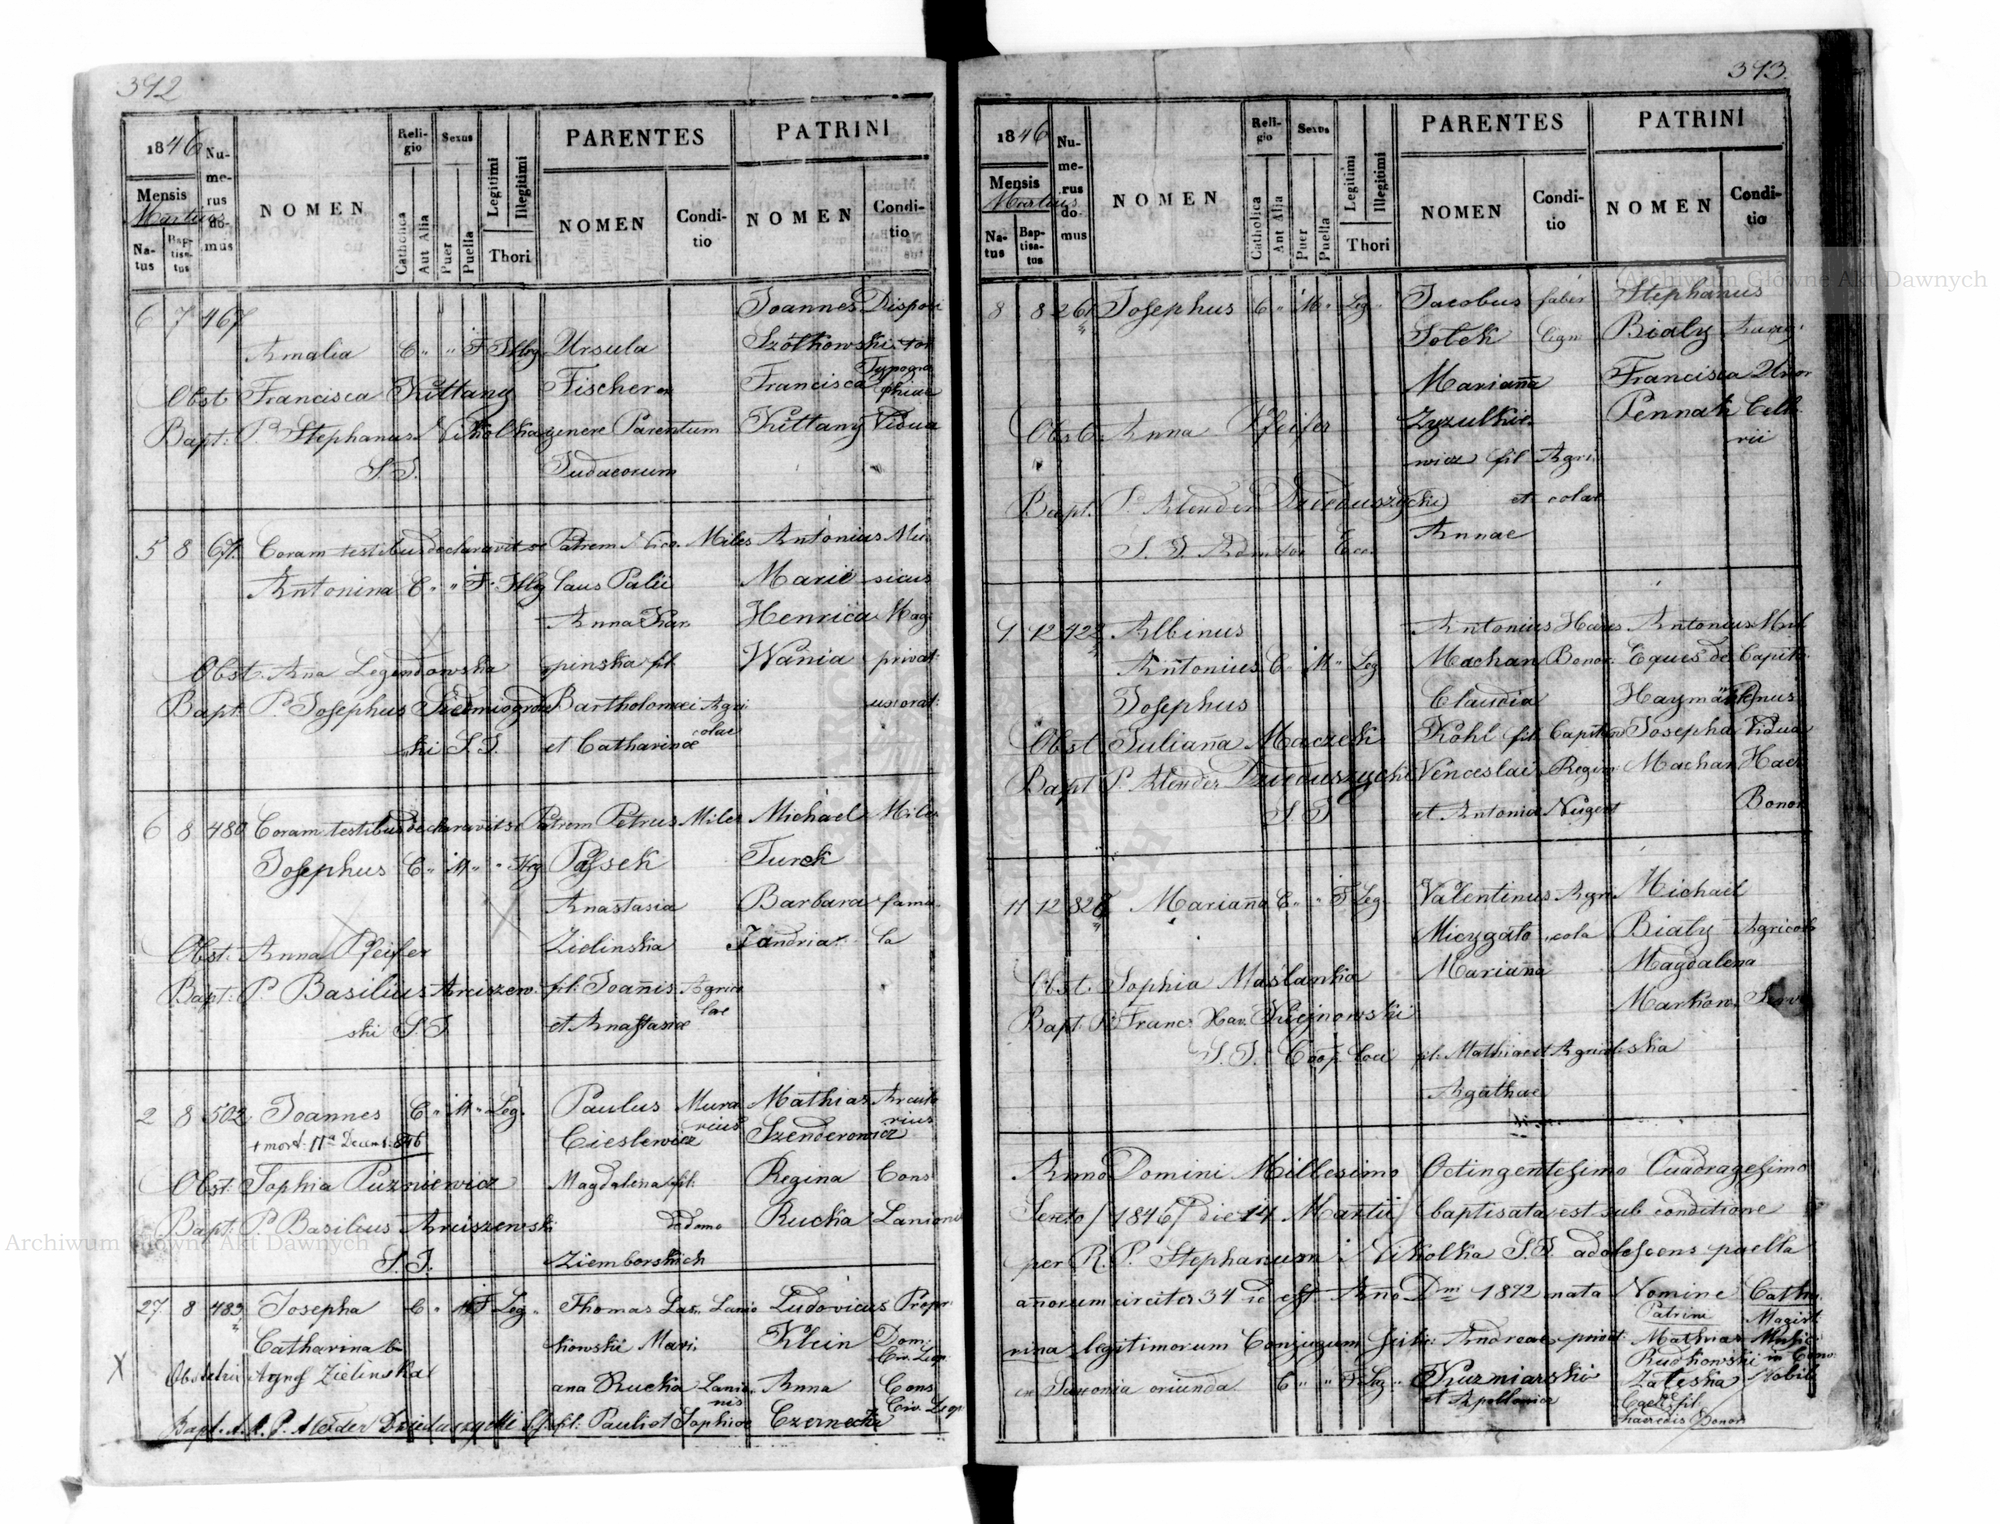 392
1846
Mensis
Martius
Natus
Baptisatus
Numerus domus
NOMEN
Religio
Catholica
Aut Alia
Sexus
Puer
Puella
Legitimi
Illegitimi
Thori
PARENTES
NOMEN
Conditio
PATRINI
NOMEN
Conditio
6 7 467 Joannes Disposi
Amalia C " " F Illeg Ursula Szotkowski tor
Obst Francisca Kittany Fischer Francisca Typogra
phiae
Bapt: P. Stephanus Nikolka genere Parentum Kittany Vidua
S.J. Judaeorum
5 8 67 Coram testibus declaravit se Patrem Nico Miles Antonius Mu
Antonina C " " F Illeg laus Palii Marie sicus
Anna Kar Henrica Mag
Obst. Ana Legendowska pinska fil. Wania privat
Bapt P. Josephus Siedmiogrodz Bartholomaei Agri uxorat
ski S.J. et Catharinae colae
6 8 480 Coram testibus declaravit se Patrem Petrus Miles Michael Miles
Josephus C " M " " Illeg Passek Turek
Anastasia Barbara famu
Obst. Anna Pfeifer Zielinska Jandria la
Bapt: P. Basilius Arciszew fil: Joanis Agrico
ski S.J. et Anastasiae lae
2 8 502 Joannes C " M " Leg. Paulus Mura Mathias Arcula
+ mort. 11a Decem. 846 Cieslewicz rius Szenderowicz rius
Obst. Sophia Puzniewicz Magdalena fil. Regina Cons
Bapt. P. Basilius Arciszewski de domo Rucka Lanionis
S.J. Ziemborskich
27 8 483 Josepha C " F Leg " Thomas Las Lanio Ludovicus Propr
Catharina kowski Mari Klein Dom:
Civ. Leop
Obstetrix Agnes Zielinska ana Rucka Lanio Anna Cons
nis Civ. Leop
Bapt. A. R. P. Alexder Dzieduszycki fil: Pauli et Sophiae Czernecka
393
1846
Mensis
Martius
Natus
Baptisatus
Numerus domus
NOMEN
Religio
Catholica
Aut Alia
Sexus
Puer
Puella
Legitimi
Illegitimi
Thori
PARENTES
NOMEN
Conditio
PATRINI
NOMEN
Conditio
8 8 261 Josephus C " M " Leg " Jacobus faber Stephanus
Sotek lign Bialy
Mariana Francisca Uxor
Obst. Anna Pfeifer Zyzulkie Pennath Cell
wicz fil Agri rii
Bapt. P. Alexder Dzieduszycki et colae
S. J. Admtor Ecc. Annae
9 12 422 Albinus Antonius Haers Antonius Mil
Antonius C " M " Leg Machan Bonor. Eques de Capit
Josephus Claudia Haymä
Obst Juliana Maczecki Kohl fil Capit Josepha Vidua
Bapt P. Alexder Dzieduszycki Venceslai Regim. Machan Haer
S J et Antonia Nugent Bonor
11 12 828 Mariana C " " F Leg Valentinus Agri Michael
Micygalo cola Bialy Agricola
Obst. Sophia Maslanka Mariana Magdalena
Bapt. P. Franc. Xav. Kiejnowski Markow Serv
S. J. Coop. Loci fil. Mathiae et Agricol ska
Agathae
Anno Domini Millesimo Octingentesimo Quadragesimo
Sexto /1846/ die 14 Martii baptisata est sub conditione
per R. P. Stephanum Nikolka S.J. adolescens puella
anorum circiter 34 id est Ano Dni 1812 nata Nomine Catha
rina legitimorum Conjugum filia: Andreae privat: Patrini Magist
Mathias Music
ex Saxonia oriunda C " " F Leg " Kuzniarski Rudkowski
et Apollonia Zaleska Nobil
fil
haeredis Bonor
Archiwum Główne Akt Dawnych
Archiwum Główne Akt Dawnych